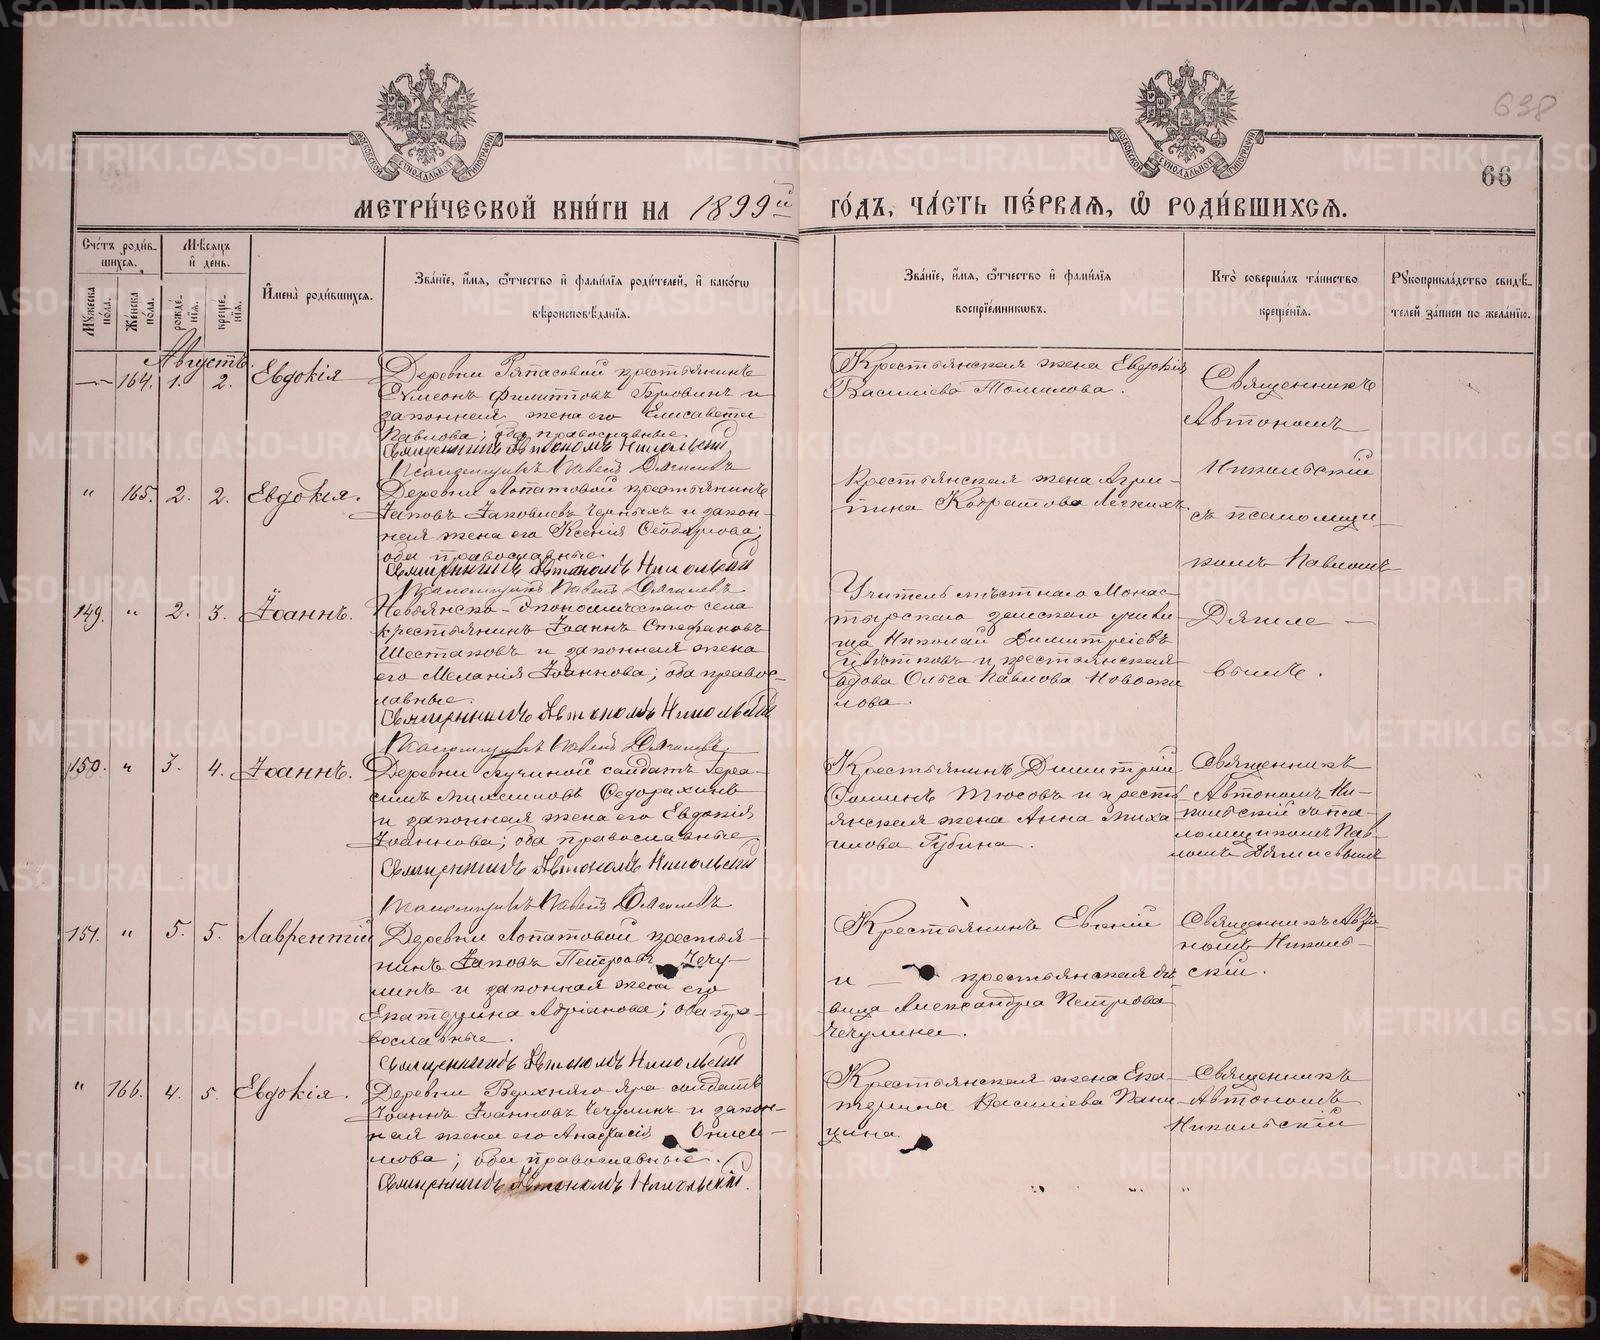 638
66
МЕТРИЧЕСКОЙ КНИГИ НА 1899й ГОДЪ, ЧАСТЬ ПЕРВАЯ, Ѽ РОДИВШИХСЯ.
Счетъ родив-
шихся.
Мужеска пола.
Женска пола.
Мѣсяцъ и день.
рожде-
нія.
креще-
нія.
Имена родившихся.
Званіе, имя, ѿчество и фамилія родителей, и какогѡ
вѣроисповѣданія.
Званіе, имя, ѿчество и фамилія
воспріемниковъ.
Кто совершалъ таинство
крещенія.
Рукоприкладство свидѣ-
телей записи по желанію.
Августъ.
164. 1. 2. Евдокія
Деревни крестьянинъ
Сѵмеонъ Филипповъ и
законная жена его Елисавета
Павлова; оба православные.
Священникъ Автономъ Никольскій
Псаломщикъ Павелъ Дягилевъ
Крестьянская жена Евдокія
Василіева Томилова.
Священникъ
Автономъ
Никольскій
съ псаломщи-
комъ Павломъ
Дягиле-
вымъ.
" 165. 2. 2. Евдокія.
Деревни Лопатовой крестьянинъ
Іаковъ Іаковлевъ Черныхъ и закон-
ная жена его Ксенія Ѳеодорова;
оба православные.
Священникъ Автономъ Никольскій
Псаломщикъ Павелъ Дягилевъ
Крестьянская жена Агрип-
пина Кодратова Легкихъ.
149. " 2. 3. Іоаннъ.
Невьянско-экономическаго села
крестьянинъ Іоаннъ Стефановъ
Шестаковъ и законная жена
его Меланія Іоаннова; оба правос-
лавные.
Священникъ Автономъ Никольскій
Псаломщикъ Павелъ Дягилевъ
Учитель мѣстнаго Монас-
тырскаго земскаго учили-
ща Николай Димитріевъ
Цвѣтковъ и крестьянская
вдова Ольга Павлова Новожи-
лова.
150. " 3. 4. Іоаннъ.
Деревни солдатъ Гера-
симъ Ѳедорахинъ
и законная жена его Евдокія
Іоаннова; оба православные.
Священникъ Автономъ Никольскій
Псаломщикъ Павелъ Дягилевъ
Крестьянинъ Димитрій
Ѳоминъ Тюсовъ и кресть-
янская жена Анна Миха-
илова Губина.
Священникъ
Автономъ Ни-
кольскій съ пса-
ломщикомъ Пав-
ломъ Дягилевымъ
151. " 5. 5. Лаврентій
Деревни Лопатовой крестья-
нинъ Іаковъ Петровъ Чечу-
линъ и законная жена его
Екатерина Адріанова; оба пра-
вославные.
Священникъ Автономъ Никольскій
Крестьянинъ Евгеній
и — крестьянская дѣ-
вица Александра Петрова
Чечулина.
Священникъ Авто-
номъ Николь-
скій.
" 166. 4. 5. Евдокія.
Деревни Верхняго Яра солдатъ
Іоаннъ Іоанновъ Чечулинъ и закон-
ная жена его Анастасія Ониси-
мова; оба православные.
Священникъ Автономъ Никольскій.
Крестьянская жена Ека-
терина Василіева Пани-
цина.
Священникъ
Автономъ
Никольскій
METRIKI.GASO-URAL.RU